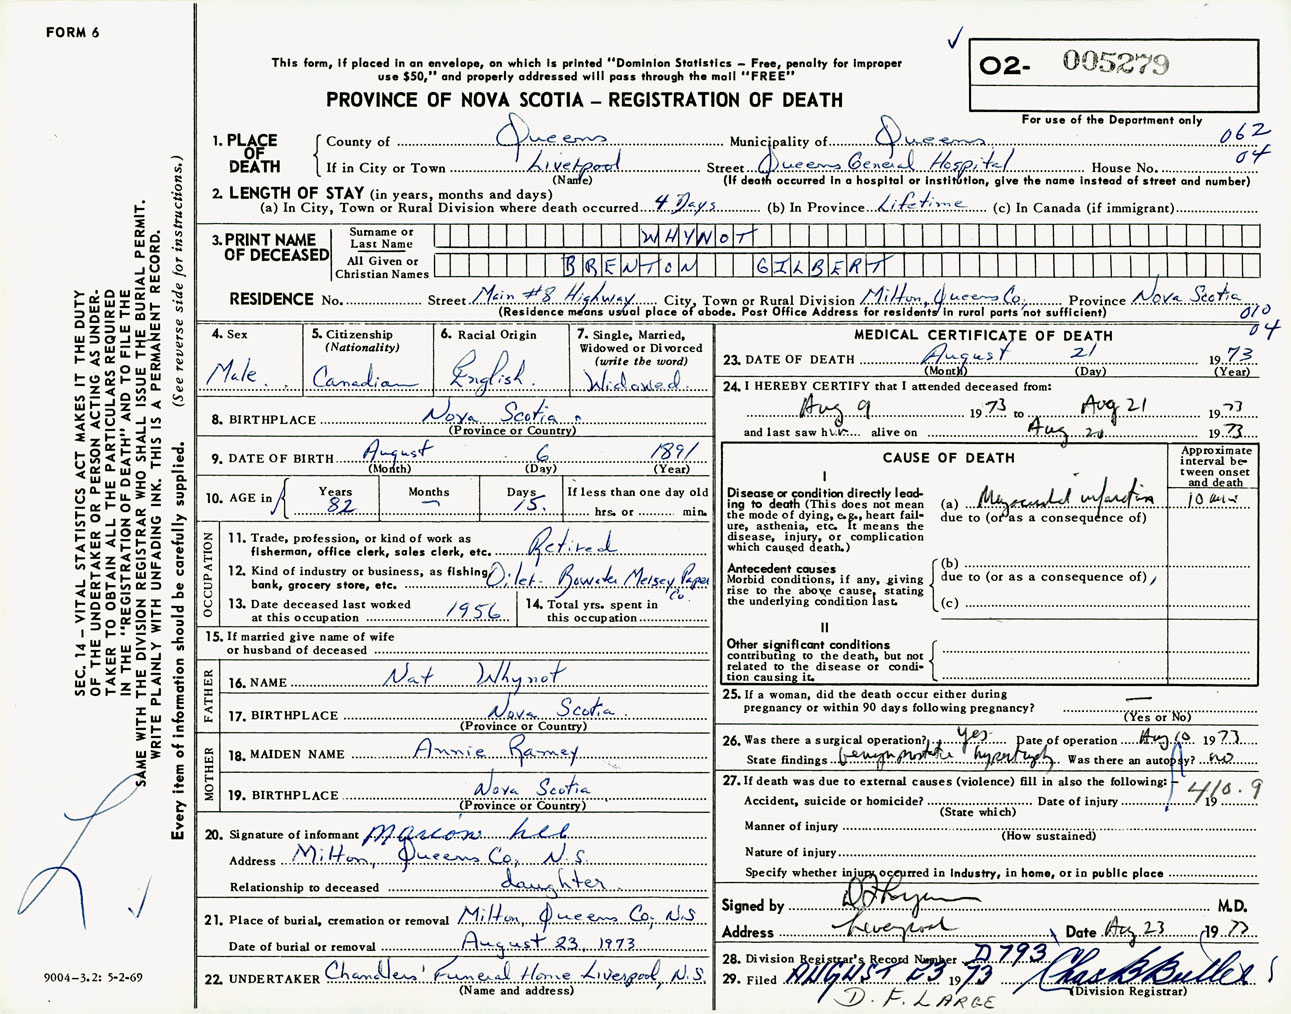 FORM 6
This form, if placed in an envelope, on which is printed "Dominion Statistics – Free, penalty for improper
use $50," and properly addressed will pass through the mail "FREE"
PROVINCE OF NOVA SCOTIA – REGISTRATION OF DEATH
O2- 005279
For use of the Department only
062
04
1. PLACE OF DEATH
County of Queens Municipality of Queens
If in City or Town Liverpool Street Queens General Hospital House No.
(Name) (If death occurred in a hospital or institution, give the name instead of street and number)
2. LENGTH OF STAY (in years, months and days)
(a) In City, Town or Rural Division where death occurred 4 Days (b) In Province Lifetime (c) In Canada (if immigrant)
3. PRINT NAME OF DECEASED
Surname or Last Name WHYNOT
All Given or Christian Names BRENTON GILBERT
RESIDENCE No. Street Main #8 Highway City, Town or Rural Division Milton, Queens Co. Province Nova Scotia
(Residence means usual place of abode. Post Office Address for residents in rural parts not sufficient)
010
04
4. Sex
Male
5. Citizenship
(Nationality)
Canadian
6. Racial Origin
English
7. Single, Married,
Widowed or Divorced
(write the word)
Widowed
8. BIRTHPLACE Nova Scotia
(Province or Country)
9. DATE OF BIRTH August 6 1891
(Month) (Day) (Year)
10. AGE in Years 82 Months – Days 15
If less than one day old
hrs. or min.
OCCUPATION
11. Trade, profession, or kind of work as
fisherman, office clerk, sales clerk, etc. Retired
12. Kind of industry or business, as fishing,
bank, grocery store, etc. Oiler- Bowater Mersey Paper Co.
13. Date deceased last worked
at this occupation 1956
14. Total yrs. spent in
this occupation
15. If married give name of wife
or husband of deceased
FATHER
16. NAME Nat Whynot
17. BIRTHPLACE Nova Scotia
(Province or Country)
MOTHER
18. MAIDEN NAME Annie Ramey
19. BIRTHPLACE Nova Scotia
(Province or Country)
20. Signature of informant Marion
Address Milton, Queens Co., N.S.
Relationship to deceased daughter
21. Place of burial, cremation or removal Milton, Queens Co, N.S
Date of burial or removal August 23, 1973
22. UNDERTAKER Chandlers' Funeral Home Liverpool, N.S
(Name and address)
MEDICAL CERTIFICATE OF DEATH
23. DATE OF DEATH August 21 1973
(Month) (Day) (Year)
24. I HEREBY CERTIFY that I attended deceased from:
Aug 9 1973 to Aug 21 1973
and last saw him alive on Aug 1973
CAUSE OF DEATH
Approximate
interval be-
tween onset
and death
I
Disease or condition directly lead-
ing to death (This does not mean
the mode of dying, e.g., heart fail-
ure, asthenia, etc. It means the
disease, injury, or complication
which caused death.)
(a) Myocardial infarction 10 min
due to (or as a consequence of)
Antecedent causes
Morbid conditions, if any, giving
rise to the above cause, stating
the underlying condition last.
(b)
due to (or as a consequence of)
(c)
II
Other significant conditions
contributing to the death, but not
related to the disease or condi-
tion causing it.
25. If a woman, did the death occur either during
pregnancy or within 90 days following pregnancy? —
(Yes or No)
26. Was there a surgical operation? yes Date of operation Aug 10 1973
State findings benign prostatic hypertrophy Was there an autopsy? no
27. If death was due to external causes (violence) fill in also the following:
410.9
Accident, suicide or homicide? Date of injury 19
(State which)
Manner of injury
(How sustained)
Nature of injury
Specify whether injury occurred in Industry, in home, or in public place
Signed by M.D.
Address Liverpool Date Aug 23 1973
28. Division Registrar's Record Number D793
29. Filed AUGUST 23 1973 Chas B Butler
(Division Registrar)
D. F. LARGE
SEC. 14 – VITAL STATISTICS ACT MAKES IT THE DUTY
OF THE UNDERTAKER OR PERSON ACTING AS UNDER-
TAKER TO OBTAIN ALL THE PARTICULARS REQUIRED
IN THE "REGISTRATION OF DEATH" AND TO FILE THE
SAME WITH THE DIVISION REGISTRAR WHO SHALL ISSUE THE BURIAL PERMIT.
WRITE PLAINLY WITH UNFADING INK. THIS IS A PERMANENT RECORD.
Every item of information should be carefully supplied. (See reverse side for instructions.)
9004–3.2: 5-2-69